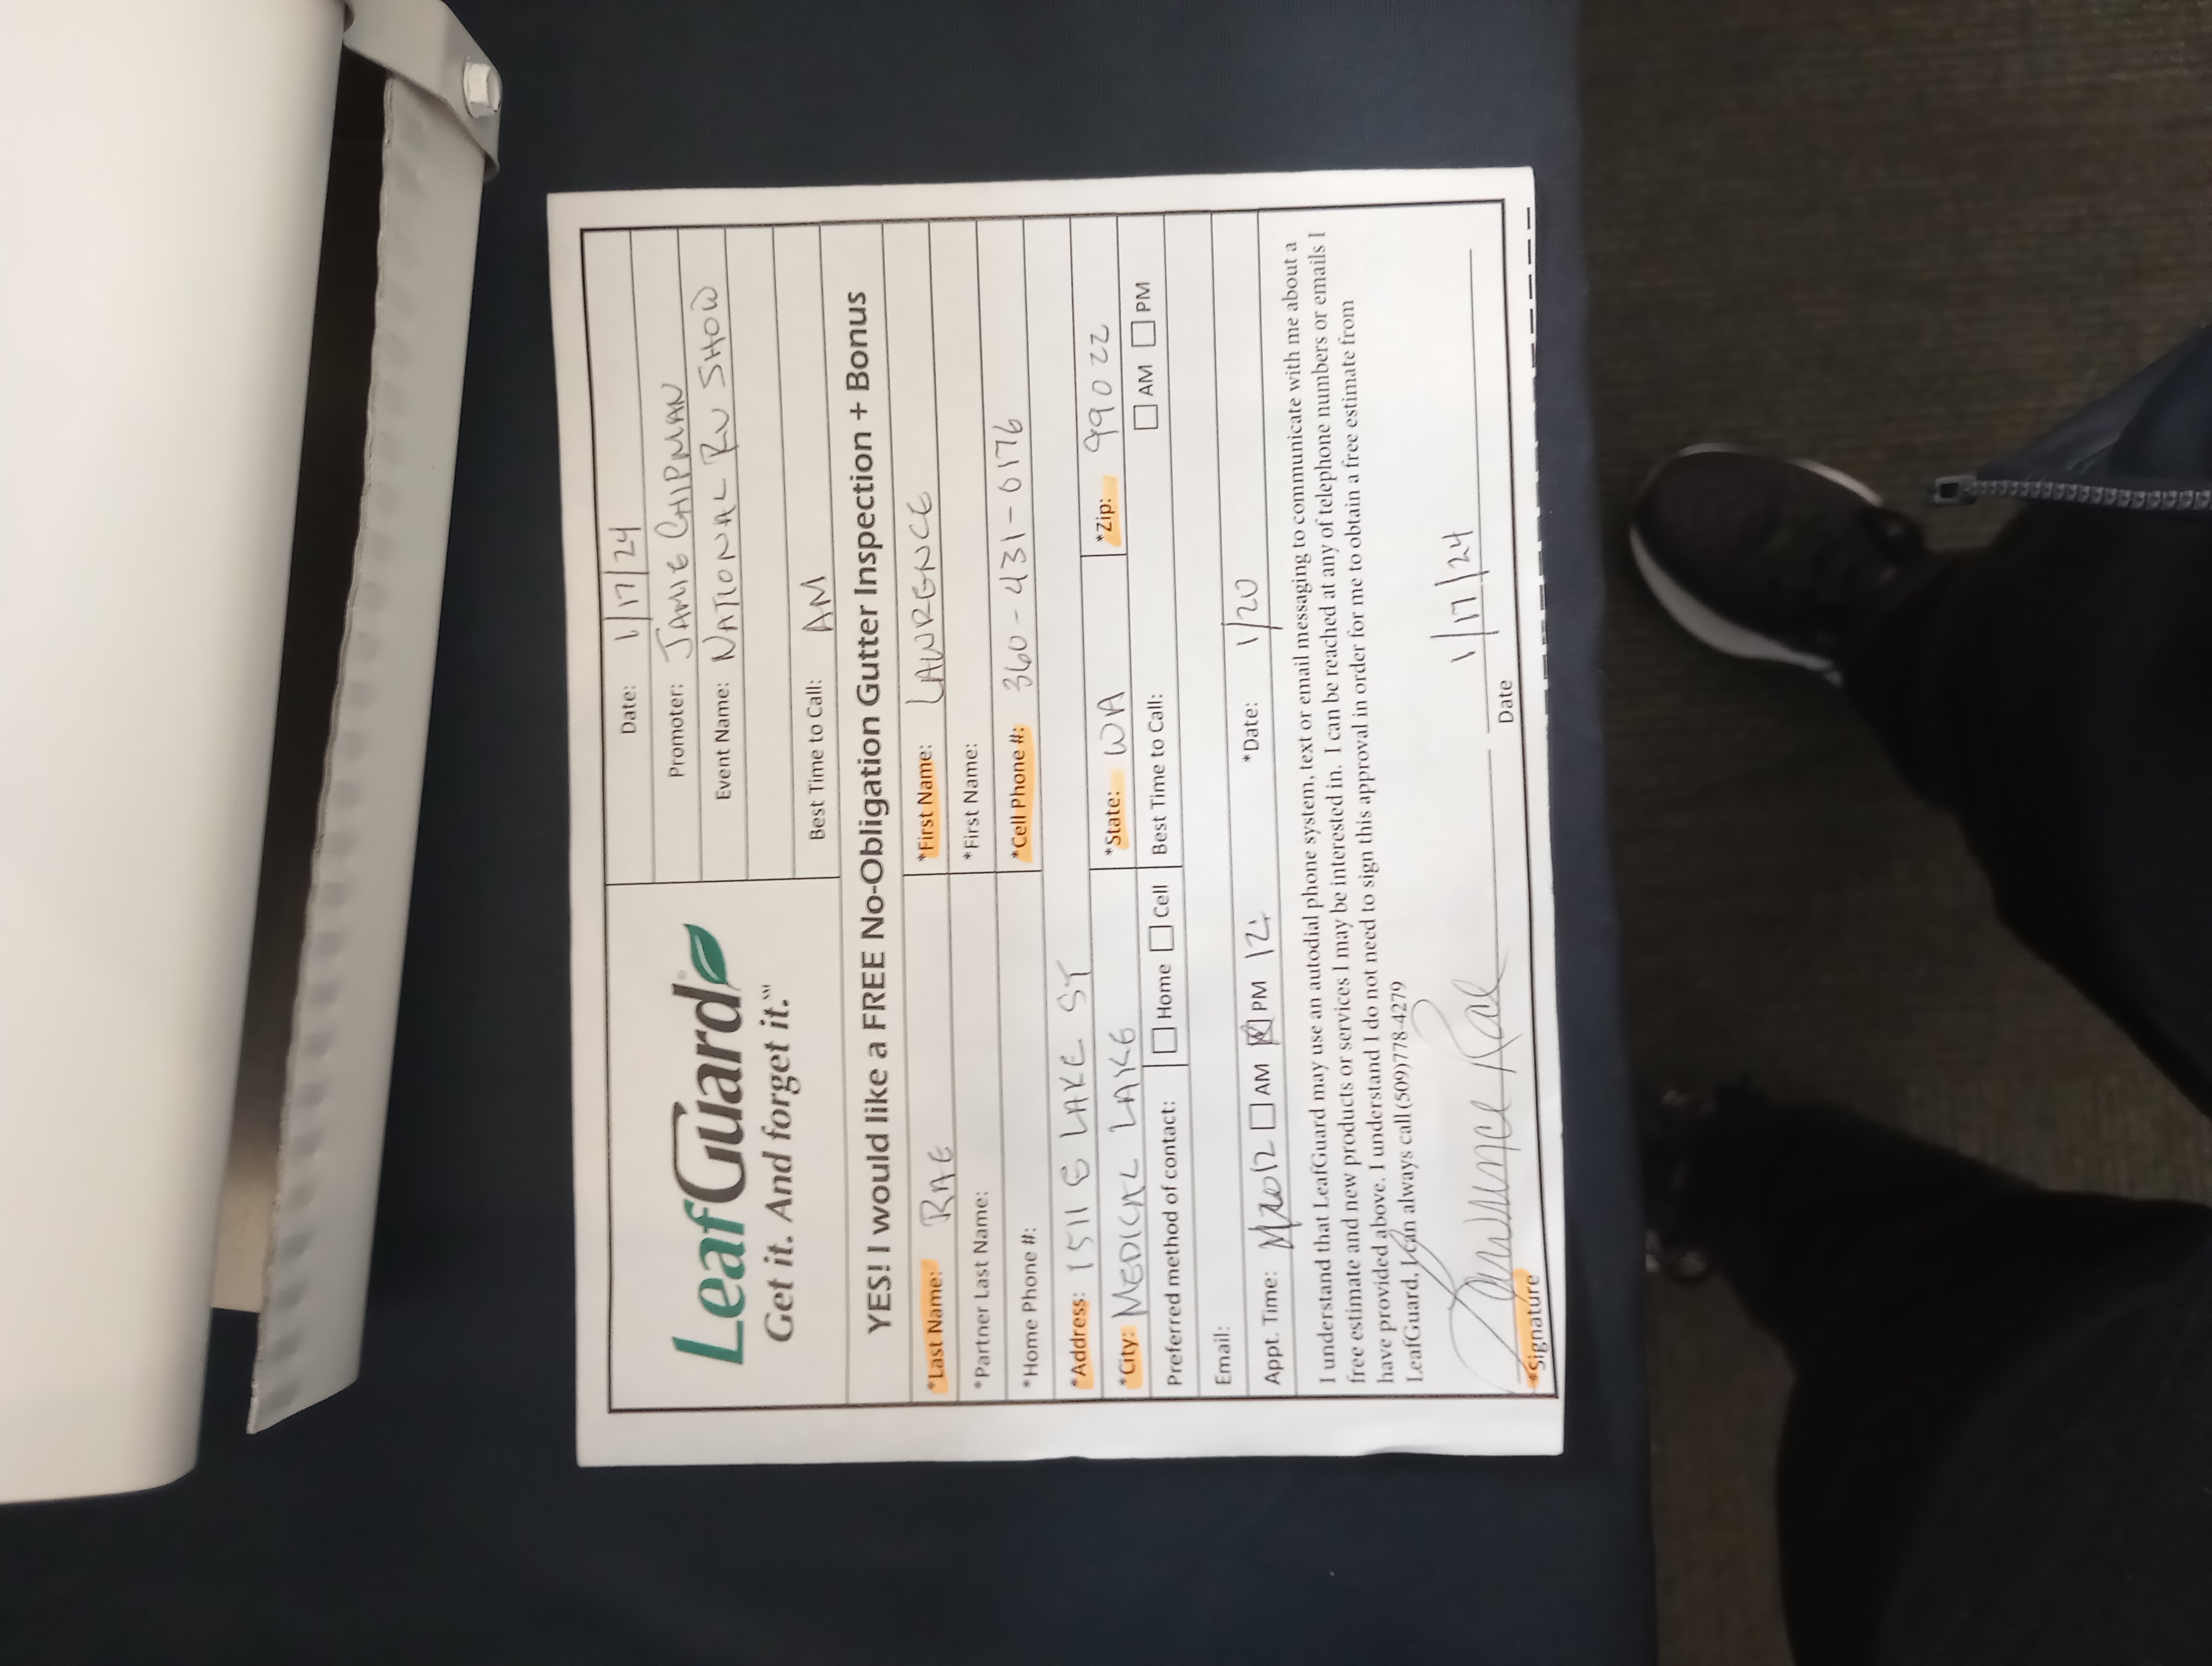 Date: 1/17/24
Promoter: JAMIE CHIPMAN
Event Name: NATIONAL RV SHOW
LeafGuard®
Get it. And forget it.℠
Best Time to Call: AM
YES! I would like a FREE No-Obligation Gutter Inspection + Bonus
*Last Name: RAE *First Name: LAWRENCE
*Partner Last Name: *First Name:
*Home Phone #: *Cell Phone #: 360-431-0176
*Address: 1511 E LAKE ST
*City: MEDICAL LAKE *State: WA *Zip: 99022
Preferred method of contact: Home Cell Best Time to Call: AM PM
Email:
Appt. Time: 12 AM PM 12: *Date: 1/20
I understand that LeafGuard may use an autodial phone system, text or email messaging to communicate with me about a
free estimate and new products or services I may be interested in. I can be reached at any of telephone numbers or emails I
have provided above. I understand I do not need to sign this approval in order for me to obtain a free estimate from
LeafGuard. I can always call (509)778-4279
Lawrence Rae 1/17/24
*Signature Date